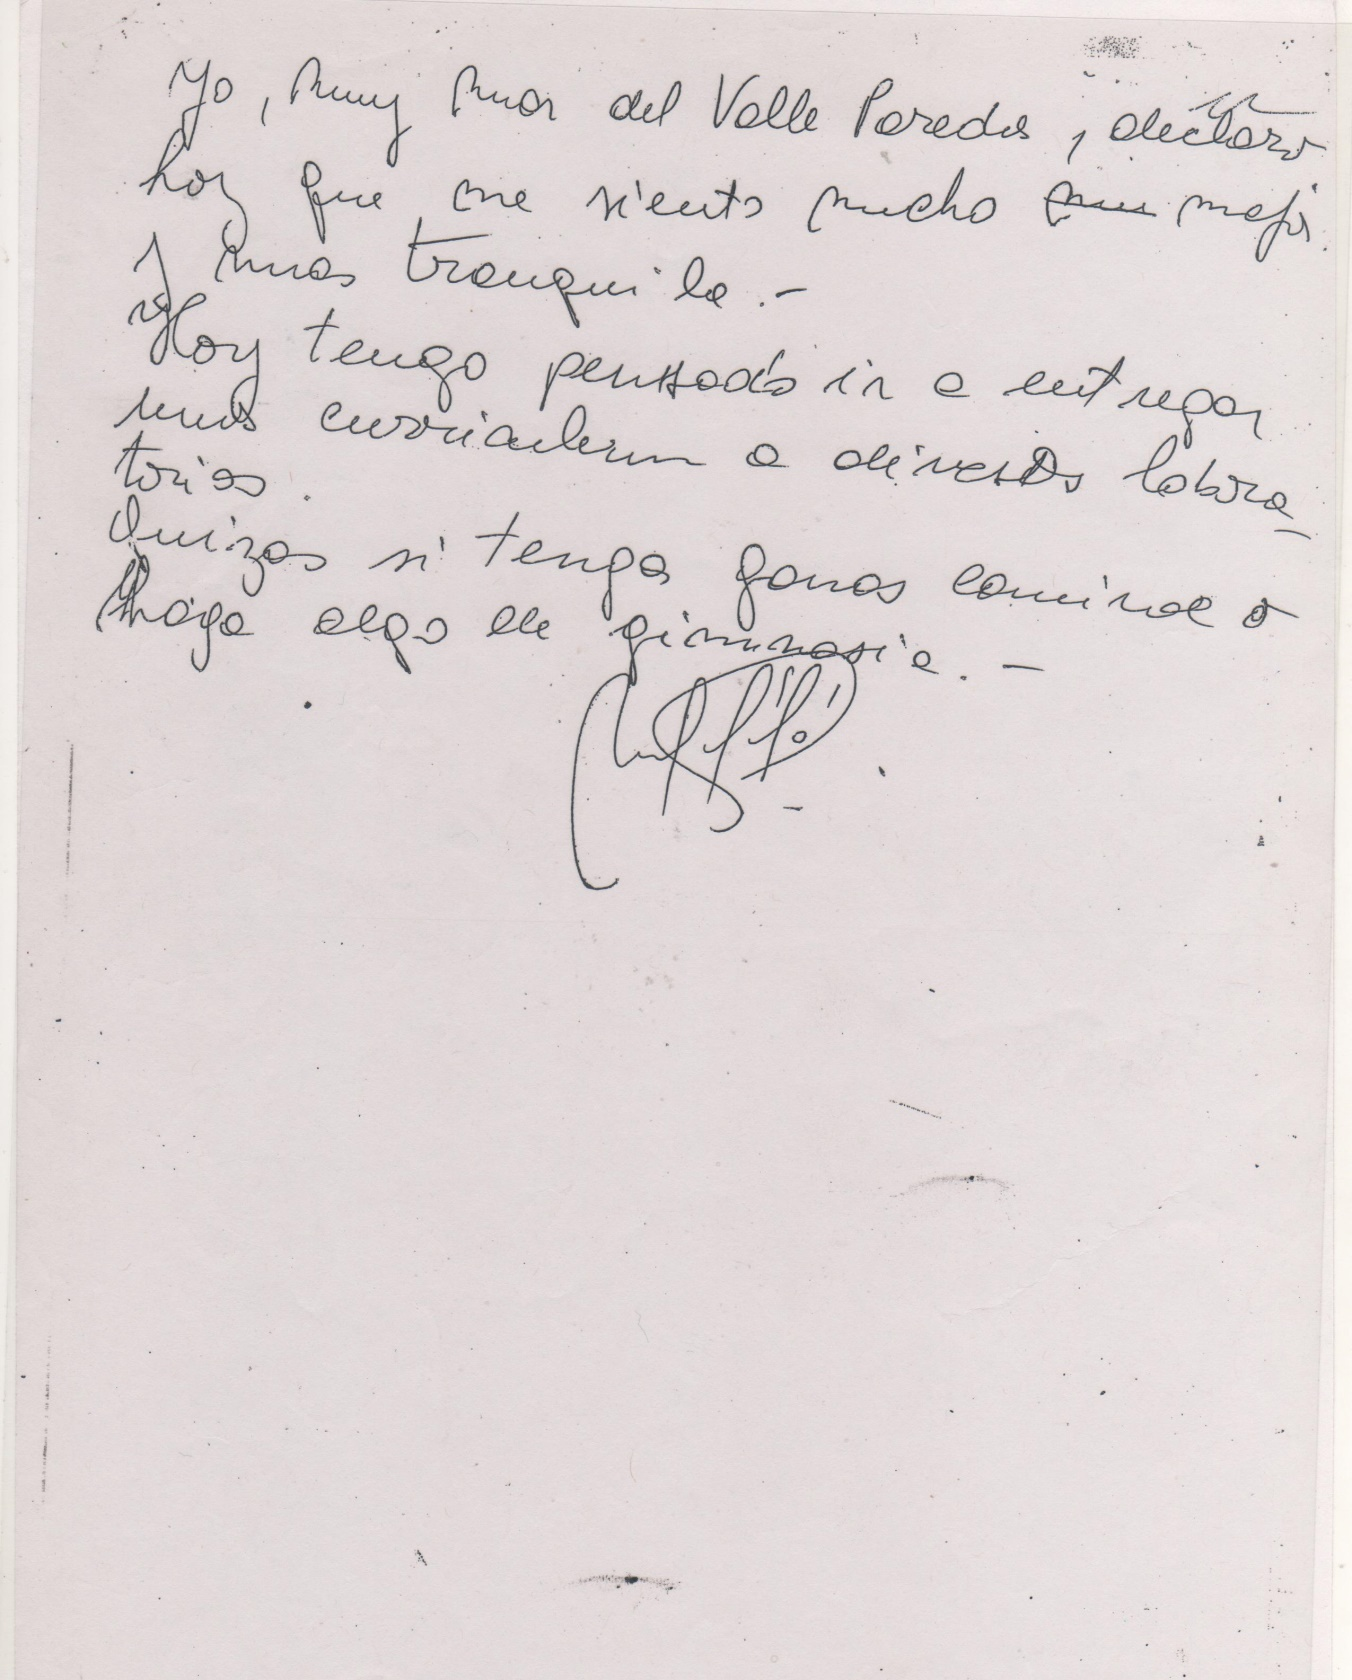 Yo, Muy Mar del Valle Paredes, declaro
hoy que me siento mucho mejor
y mas tranquila.-
Hoy tengo pensado ir a entregar
unos curriculum a diversos labora-
torios.
Quizas si tenga ganas camine o
haga algo de gimnasia.-